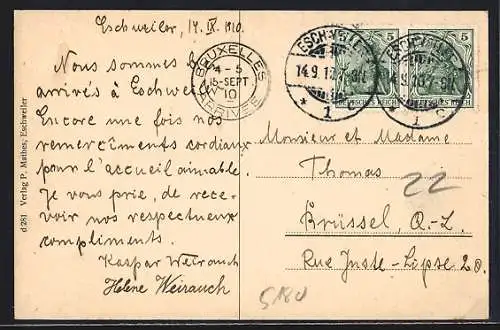 Eschweiler, 14. IX. 1910.
Nous sommes
arrivés à Eschweiler
Encore une fois nos
remercîments cordiaux
pour l'accueil aimable.
Je vous prie, de rece-
voir nos respectueux
compliments.
Kaspar Weirauch
Helene Weirauch
BRUXELLES
4-5
15-SEPT
10
ARRIVEE
ESCHWEILER
14.9.10.7-8N.
* 1
ESCHWEILER
14.9.10.7-8N.
1
5
5
DEUTSCHES REICH
DEUTSCHES REICH
Monsieur et Madame
Thomas
22
Brüssel, Q.-L.
Rue Juste-Lipse 20.
5180
d 281 Verlag P. Mathes, Eschweiler